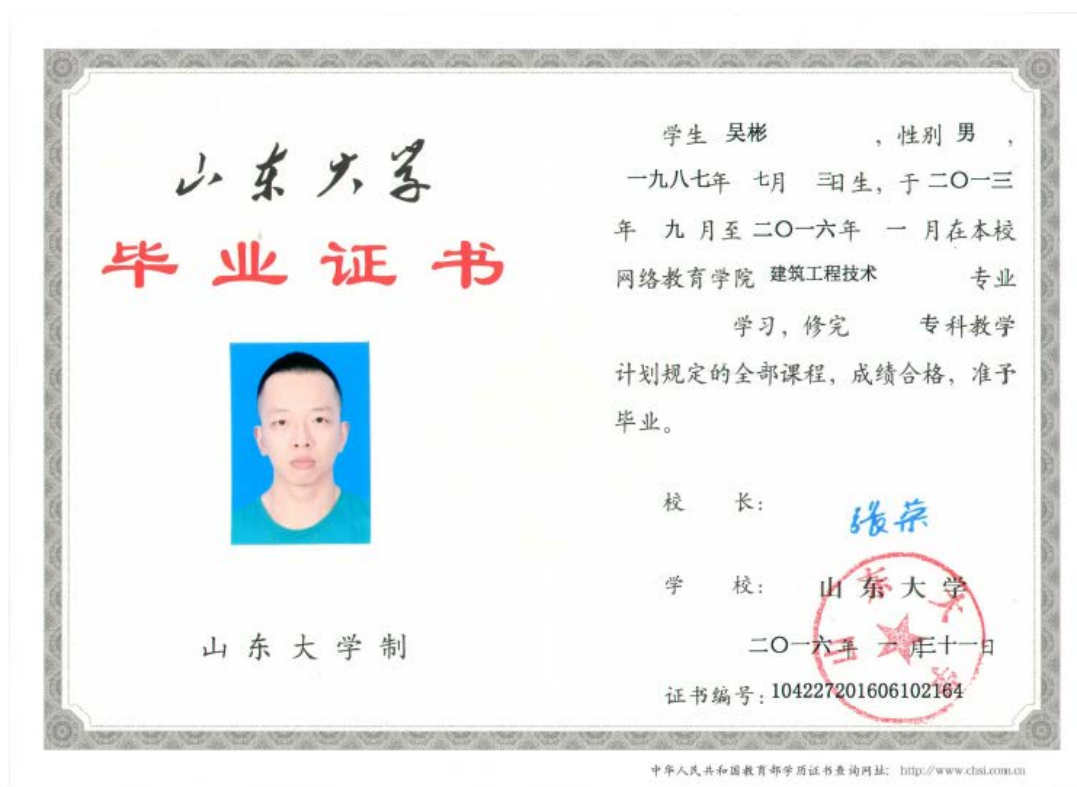 山东大学
毕业证书
山东大学制
学生 吴彬 ，性别 男 ，
一九八七年 七月 三日生，于 二〇一三
年 九 月至 二〇一六年 一 月在本校
网络教育学院 建筑工程技术 专业
学习，修完 专科教学
计划规定的全部课程，成绩合格，准予
毕业。
校 长：
张荣
学 校： 山东大学
山东大学
二〇一六年 一月三十一日
证书编号：104227201606102164
中华人民共和国教育部学历证书查询网址：http://www.chsi.com.cn